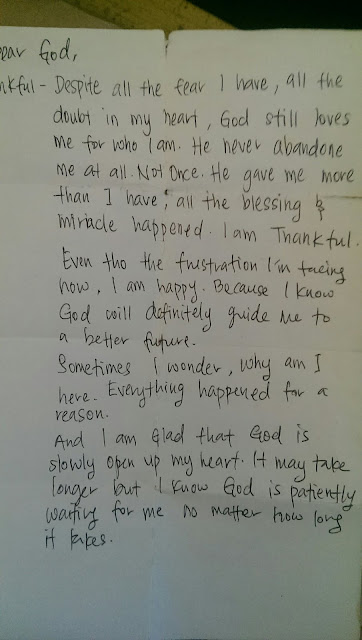 Dear God,
nkful - Despite all the fear I have, all the
doubt in my heart, God still loves
me for who I am. He never abandone
me at all. Not Once. He gave me more
than I have, all the blessing &
miracle happened. I am Thankful.
Even tho the frustration I'm facing
now, I am happy. Because I know
God will definitely guide me to
a better future.
Sometimes I wonder, why am I
here. Everything happened for a
reason.
And I am Glad that God is
slowly open up my heart. It may take
longer but I know God is patiently
waiting for me no matter how long
it takes.